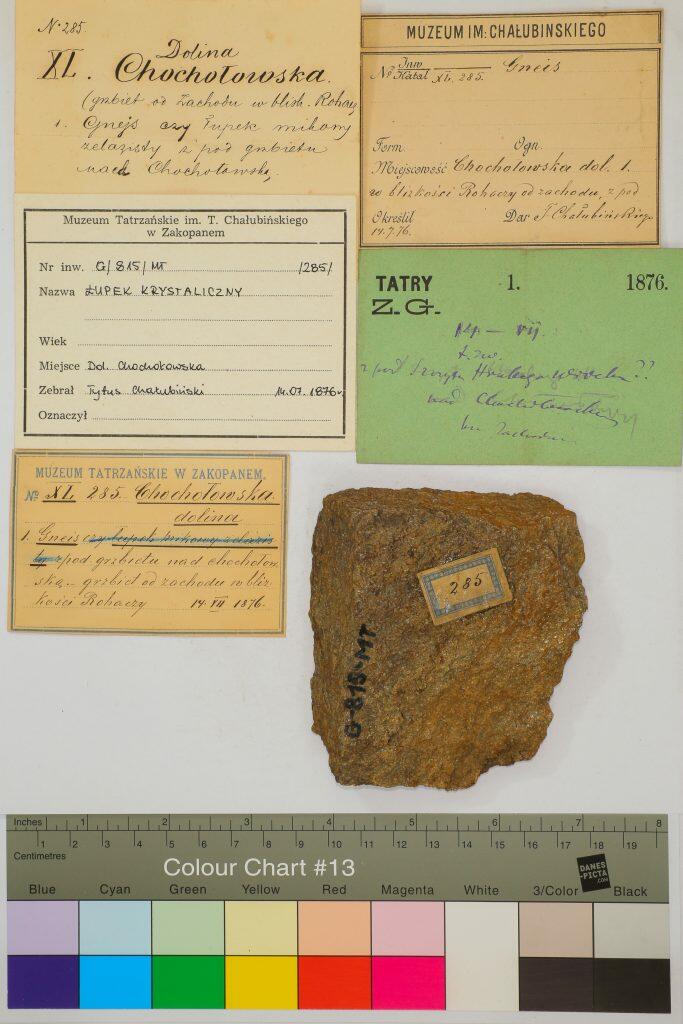 № 285.
XL. Dolina
Chochołowska.
(grzbiet od Zachodu w blisk. Rohaczy
1. Gnejs czy łupek mikowy
żelazisty z pod grzbietu
nad Chochołowską
MUZEUM IM: CHAŁUBINSKIEGO
№ Inw. Katal XL. 285. Gneis
Form. Ogn.
Miejscowość Chochołowska dol. 1.
w blizkości Rohaczy od zachodu, z pod
Określił Dar T Chałubińskiego
14.7.76.
Muzeum Tatrzańskie im. T. Chałubińskiego
w Zakopanem
Nr inw. G/815/MT /285/
Nazwa ŁUPEK KRYSTALICZNY
Wiek
Miejsce Dol. Chochołowska
Zebrał Tytus Chałubiński 14.07.1876r.
Oznaczył
TATRY 1. 1876.
Z. G.
14 — VII.
t. zw.
z pod ??
nad
MUZEUM TATRZAŃSKIE W ZAKOPANEM.
№ XL 285. Chochołowska
dolina
1. Gneis czy łupek mikowy żelazis
ty z pod grzbietu nad chochołow-
ską – grzbiet od zachodu w bliz-
kości Rohaczy 14 VII 1876.
285
G-815-MT
Inches 1 2 3 4 5 6 7 8
1 2 3 4 5 6 7 8 9 10 11 12 13 14 15 16 17 18 19
Centimetres
Colour Chart #13
DANES
-PICTA
.COM
Blue Cyan Green Yellow Red Magenta White 3/Color Black